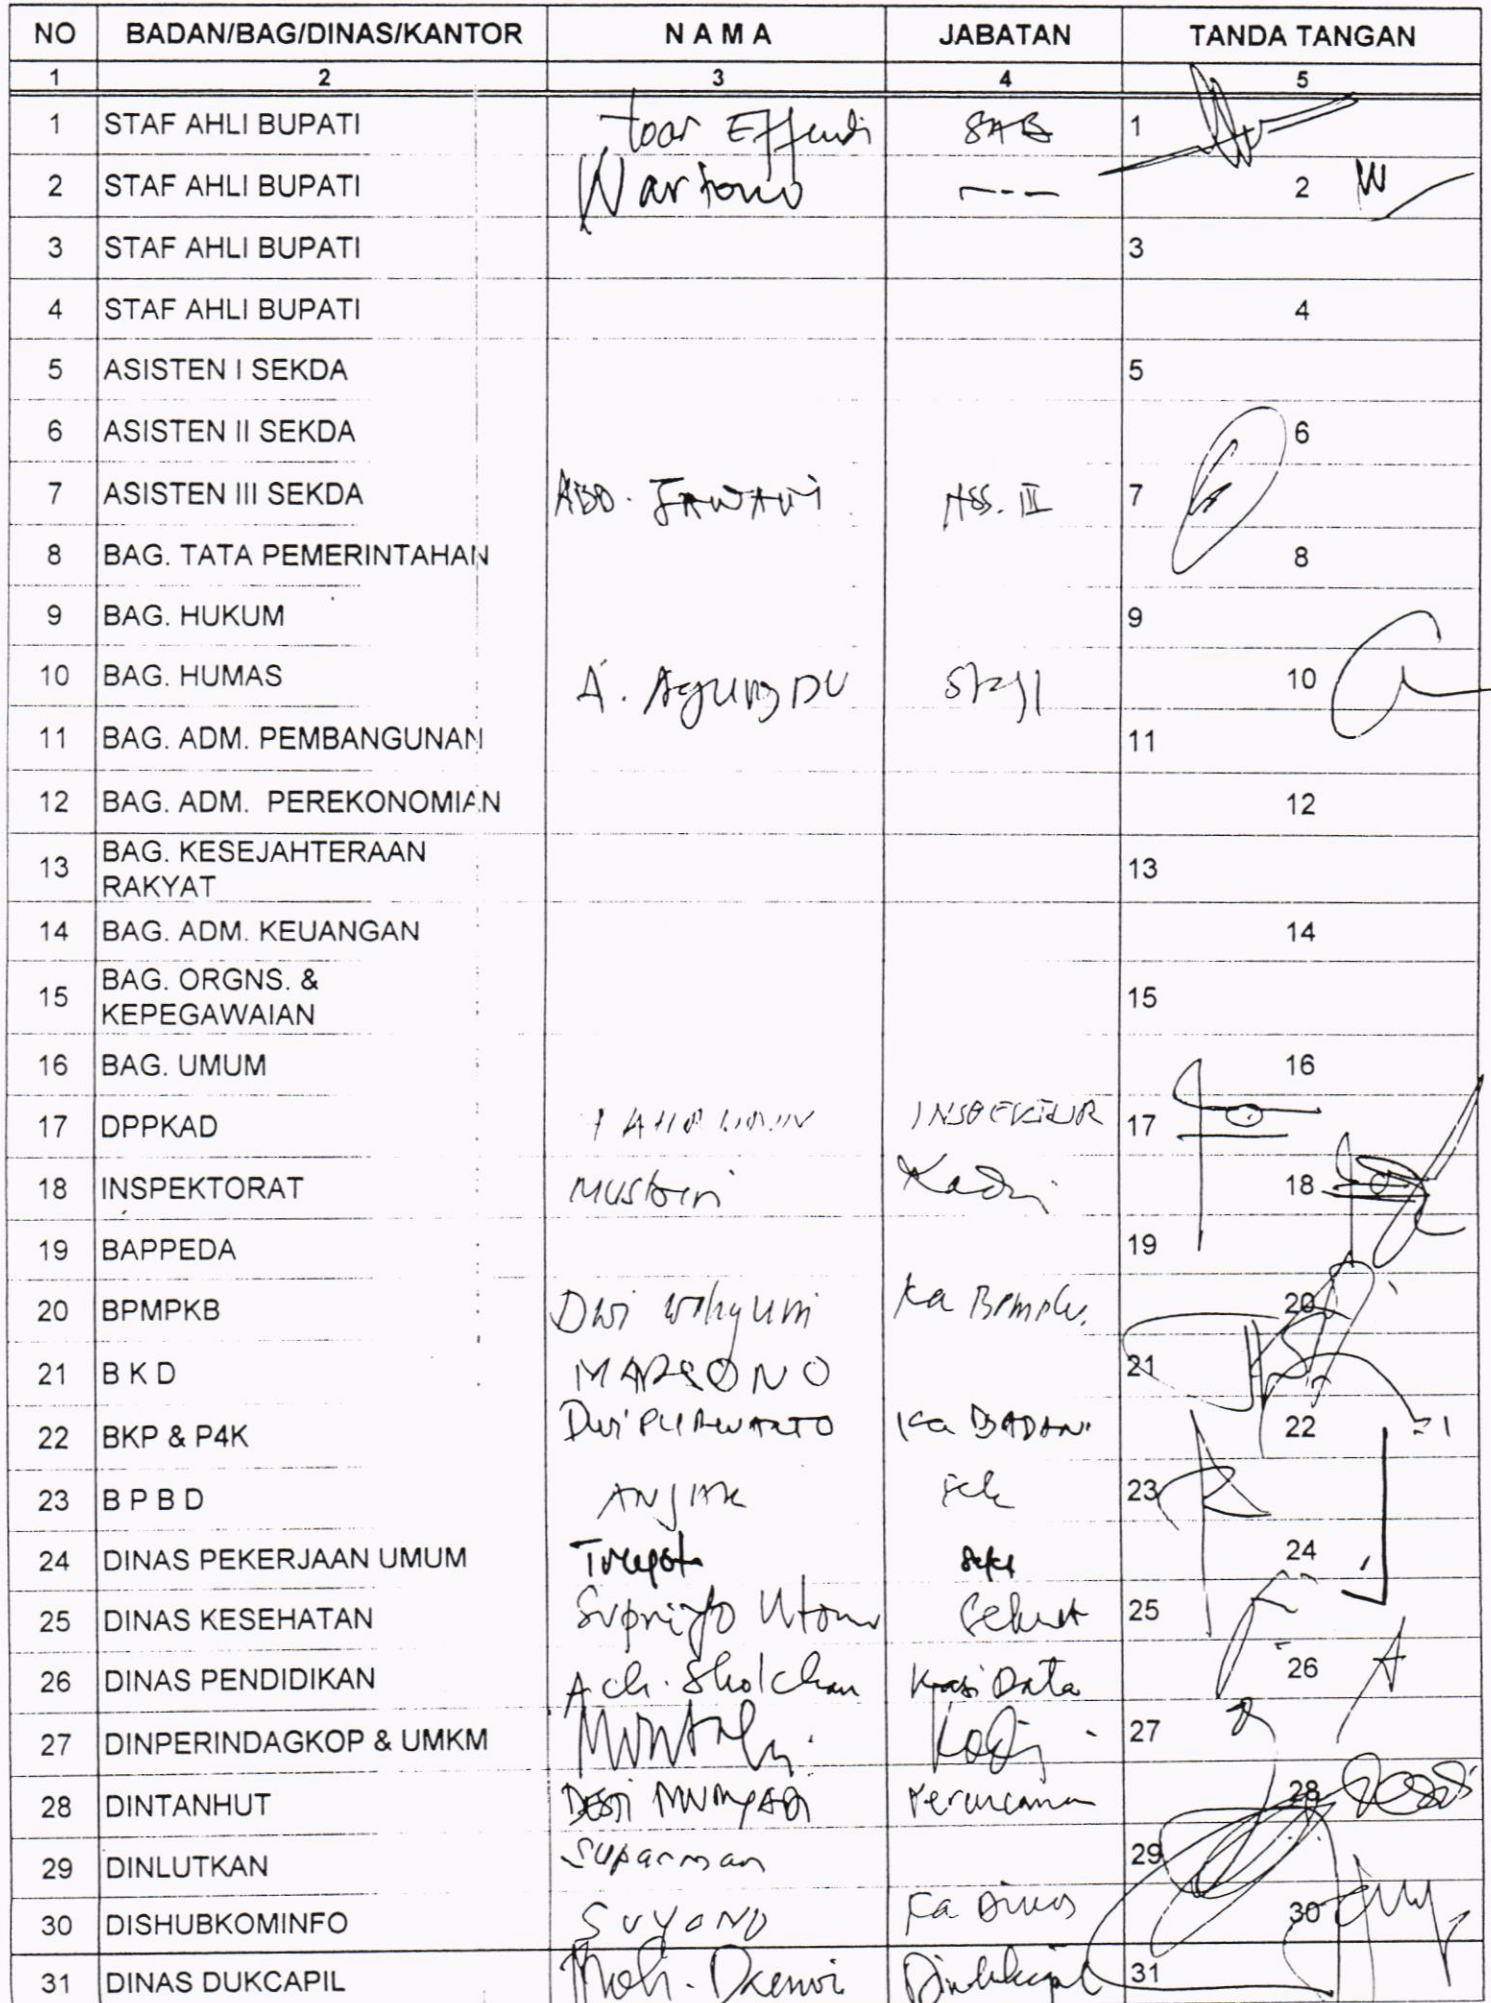 NO BADAN/BAG/DINAS/KANTOR N A M A JABATAN TANDA TANGAN
1 2 3 4 5
1 STAF AHLI BUPATI toar Effendi SAB 1
2 STAF AHLI BUPATI Wartono 2
3 STAF AHLI BUPATI 3
4 STAF AHLI BUPATI 4
5 ASISTEN I SEKDA 5
6 ASISTEN II SEKDA 6
7 ASISTEN III SEKDA ABD. Ass. III 7
8 BAG. TATA PEMERINTAHAN 8
9 BAG. HUKUM 9
10 BAG. HUMAS A. Agung DU Staf 10
11 BAG. ADM. PEMBANGUNAN 11
12 BAG. ADM. PEREKONOMIAN 12
13 BAG. KESEJAHTERAAN
RAKYAT 13
14 BAG. ADM. KEUANGAN 14
15 BAG. ORGNS. &
KEPEGAWAIAN 15
16 BAG. UMUM 16
17 DPPKAD INSPEKTUR 17
18 INSPEKTORAT 18
19 BAPPEDA 19
20 BPMPKB Dwi Wahyuni Ka 20
21 B K D MARSONO 21
22 BKP & P4K Dwi PURWANTO Ka BADAN 22
23 B P B D 23
24 DINAS PEKERJAAN UMUM 24
25 DINAS KESEHATAN Supriyo Utomo 25
26 DINAS PENDIDIKAN Ach. Sholchan Kasi Data 26
27 DINPERINDAGKOP & UMKM 27
28 DINTANHUT 28
29 DINLUTKAN Suparman 29
30 DISHUBKOMINFO SUYONO Ka Dinas 30
31 DINAS DUKCAPIL Moh. Dindukcapil 31